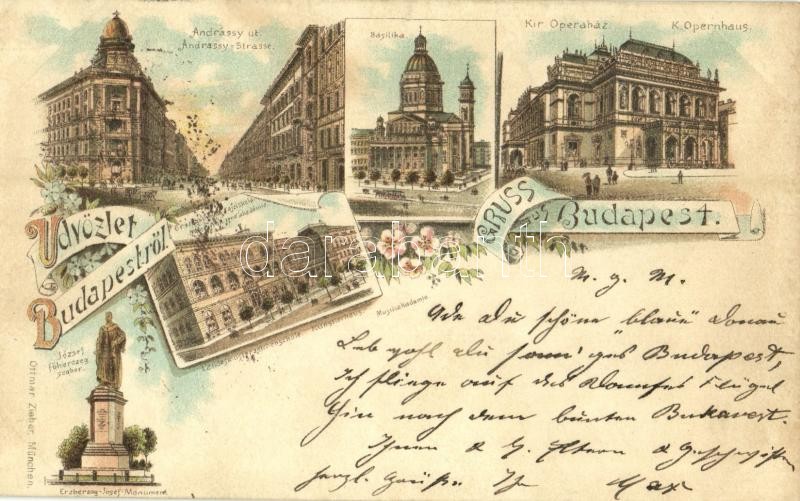 Andrássy út.
Andrássy-Strasse.
Basilika
Kir Operaház K. Opernhaus.
Üdvözlet
Budapestről
Gruss
aus
Budapest.
Musikakademie
József
Főherczeg
szobor.
Erzherzog-Josef-Monument.
Ottmar Zieher, München.
M. g. M.
Ade du schöne "blaue" Donau
Leb wohl du sonn'ges Budapest,
Ich fliege auf des Dampfes Flügel
Hin nach dem bunten Bukarest.
Ihnen & g. Eltern & Geschwister
herzl. Grüße. Ihr Max
darabanth